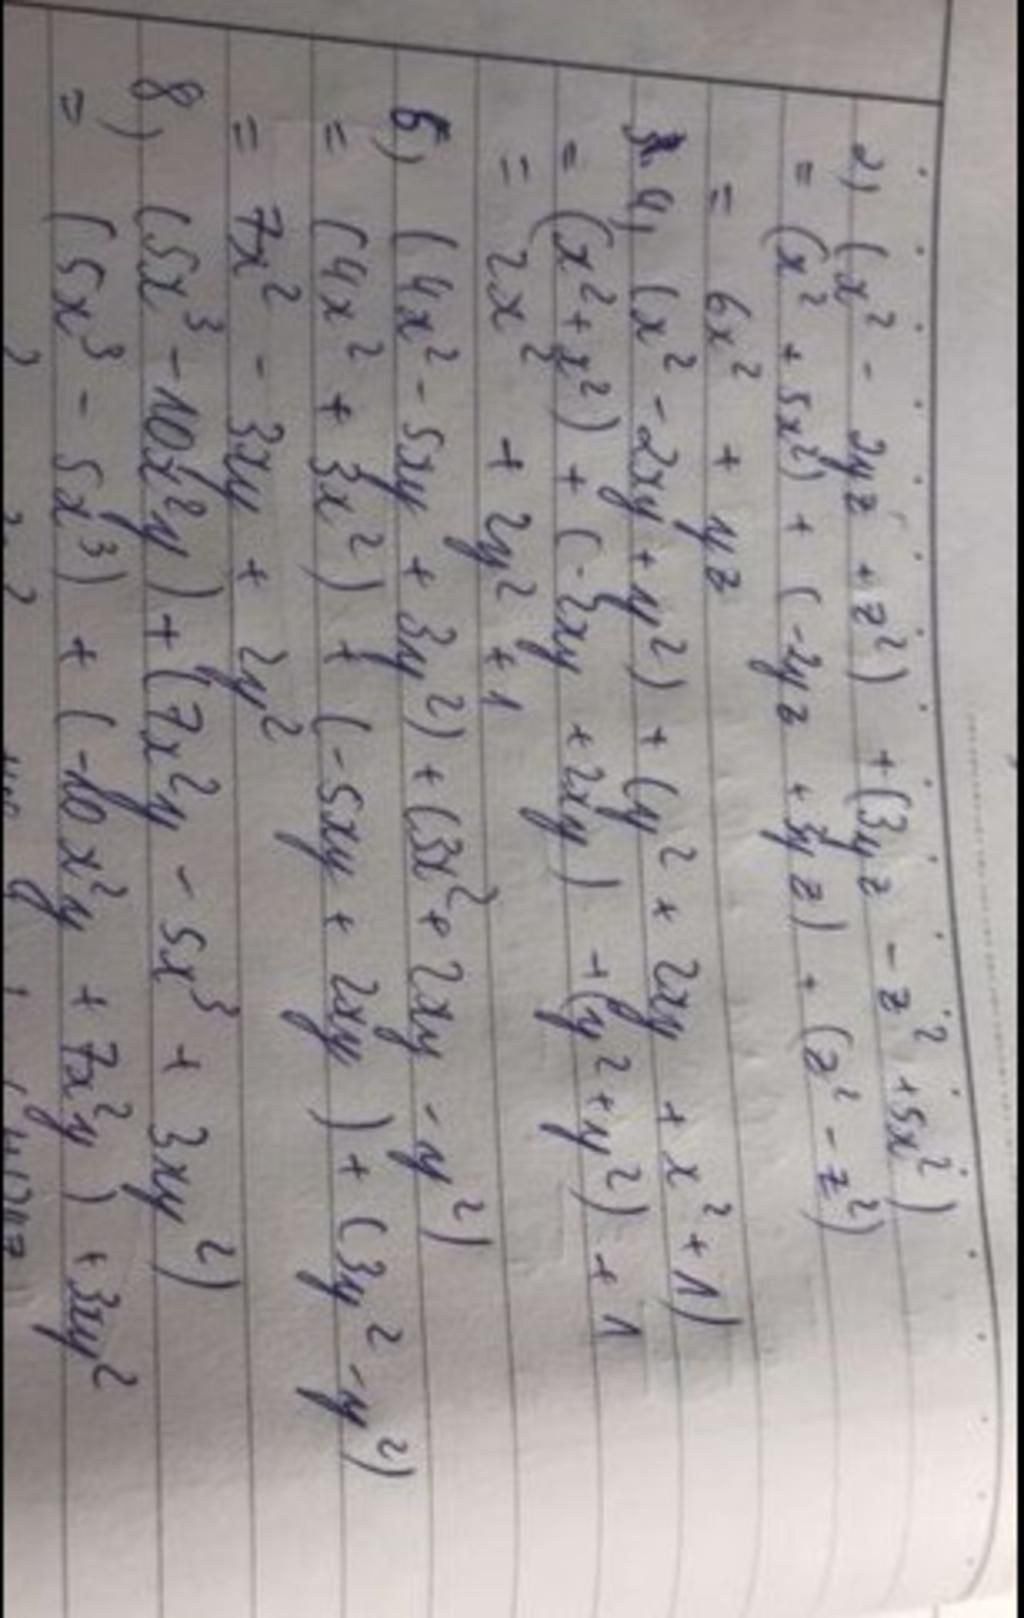 2) (x² - 2yz + z²) + (3yz - z² + 5x²)
= (x² + 5x²) + (-2yz + 3yz) + (z² - z²)
= 6x² + yz
4) (x² - 2xy + y²) + (y² + 2xy + x² + 1)
= (x² + x²) + (-2xy + 2xy) + (y² + y²) + 1
= 2x² + 2y² + 1
6) (4x² - 5xy + 3y²) + (3x² + 2xy - y²)
= (4x² + 3x²) + (-5xy + 2xy) + (3y² - y²)
= 7x² - 3xy + 2y²
8) (5x³ - 10x²y) + (7x²y - 5x³ + 3xy²)
= (5x³ - 5x³) + (-10x²y + 7x²y) + 3xy²